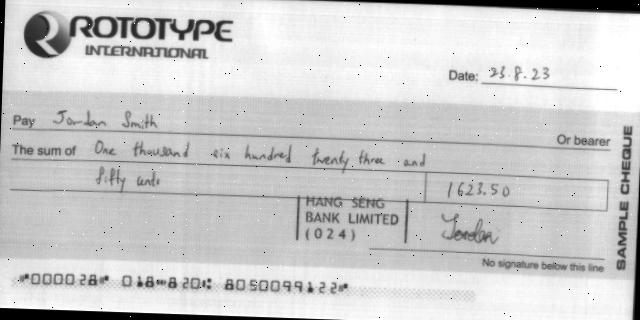 ROTOTYPE
INTERNATIONAL
Date: 23.8.23
Pay Jordan Smith
Or bearer
The sum of One thousand six hundred twenty three and
fifty cents
1623.50
HANG SENG
BANK LIMITED
(024)
Jordan
No signature below this line
SAMPLE CHEQUE
⑈000028⑈ 018⑉820⑆ 8050099122⑈